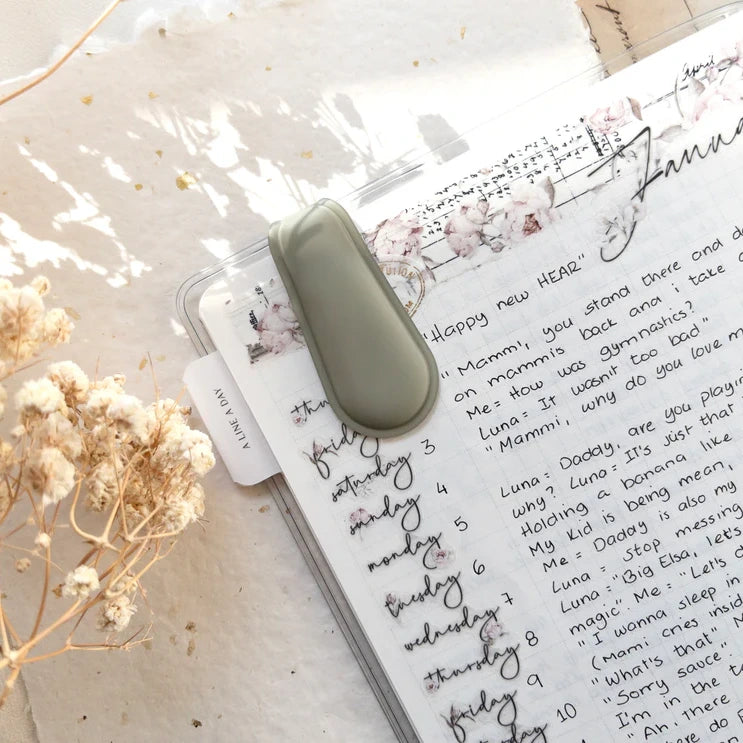 April
Janua
A LINE A DAY
"Happy new HEAR"
"Mammi, you stand there and d
on mammis back and i take
Me = How was gymnastics?
Luna = It wasn't too bad"
"Mammi, why do you love m
Luna = Daddy, are you playin
why? Luna = It's just that
Holding a banana like
My kid is being mean,
Me = Daddy is also my
Luna = stop messing
Luna = "Big Elsa, let's
magic". Me = "Let's d
"I wanna sleep in
(Mami cries insid
"What's that" M
"Sorry sauce".
I'm in the t
"Ah, there
do p
thu
friday
saturday 3
sunday 4
monday 5
tuesday 6
wednesday 7
thursday 8
friday 9
saturday 10